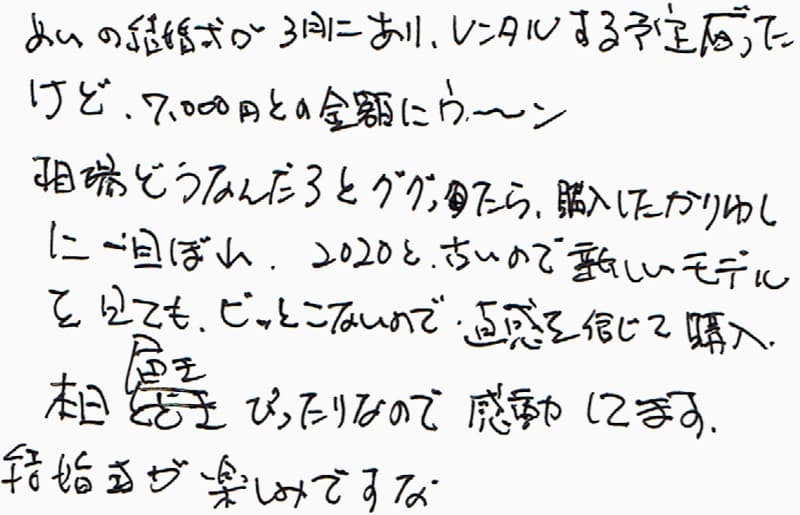 めいの結婚式が3月にあり、レンタルする予定だった
けど、7,000円との金額にウ〜ン
相場どうなんだろとググったら、購入したかりゆし
に一目ぼれ、2020と、古いので新しいモデル
を見ても、ビッとこないので、直感を信じて購入、
本日届きぴったりなので感動してます。
結婚式が楽しみですな